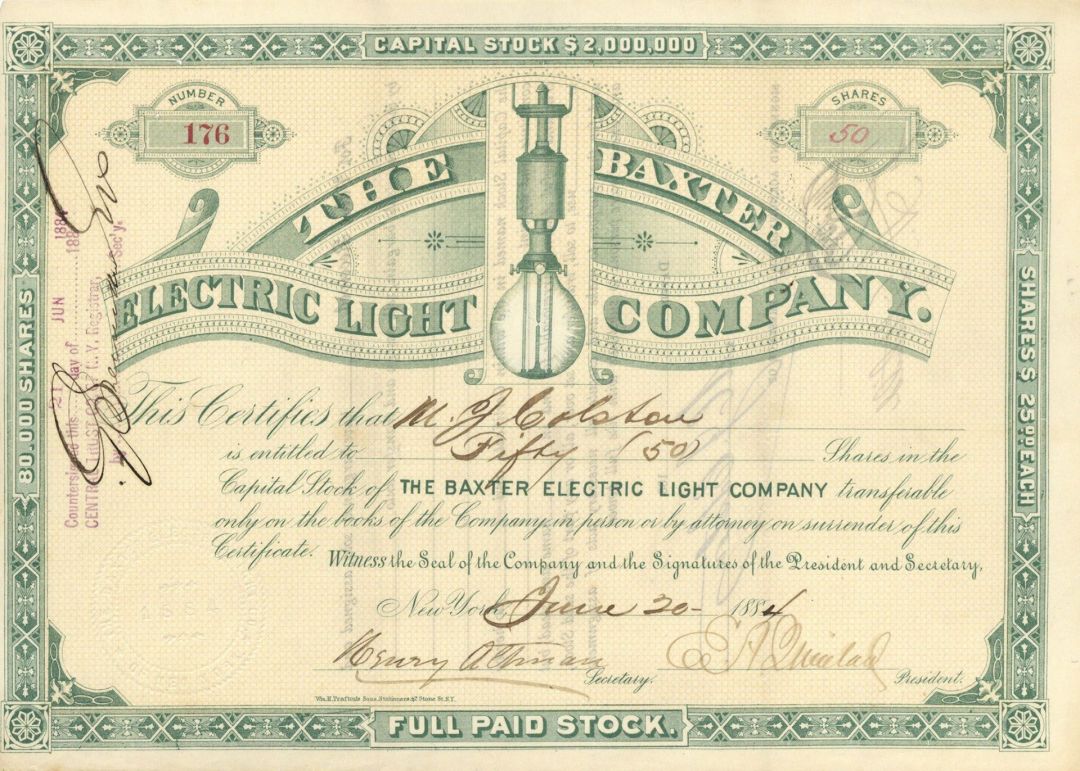 CAPITAL STOCK $2,000,000
NUMBER
176
SHARES
50
THE BAXTER
ELECTRIC LIGHT COMPANY.
80,000 SHARES
SHARES $ 25.00 EACH
Countersigned this 21 day of JUN 1884 188
CENTRAL TRUST CO. of N.Y. Registrar,
Sec'y.
This Certifies that M. J. Colston
is entitled to Fifty (50) Shares in the
Capital Stock of THE BAXTER ELECTRIC LIGHT COMPANY transferable
only on the books of the Company, in person or by attorney on surrender of this
Certificate. Witness the Seal of the Company and the Signatures of the President and Secretary,
New York, June 20 - 1884
Henry Altman
Secretary.
President.
Stationers 47 Stone St. N.Y.
FULL PAID STOCK.